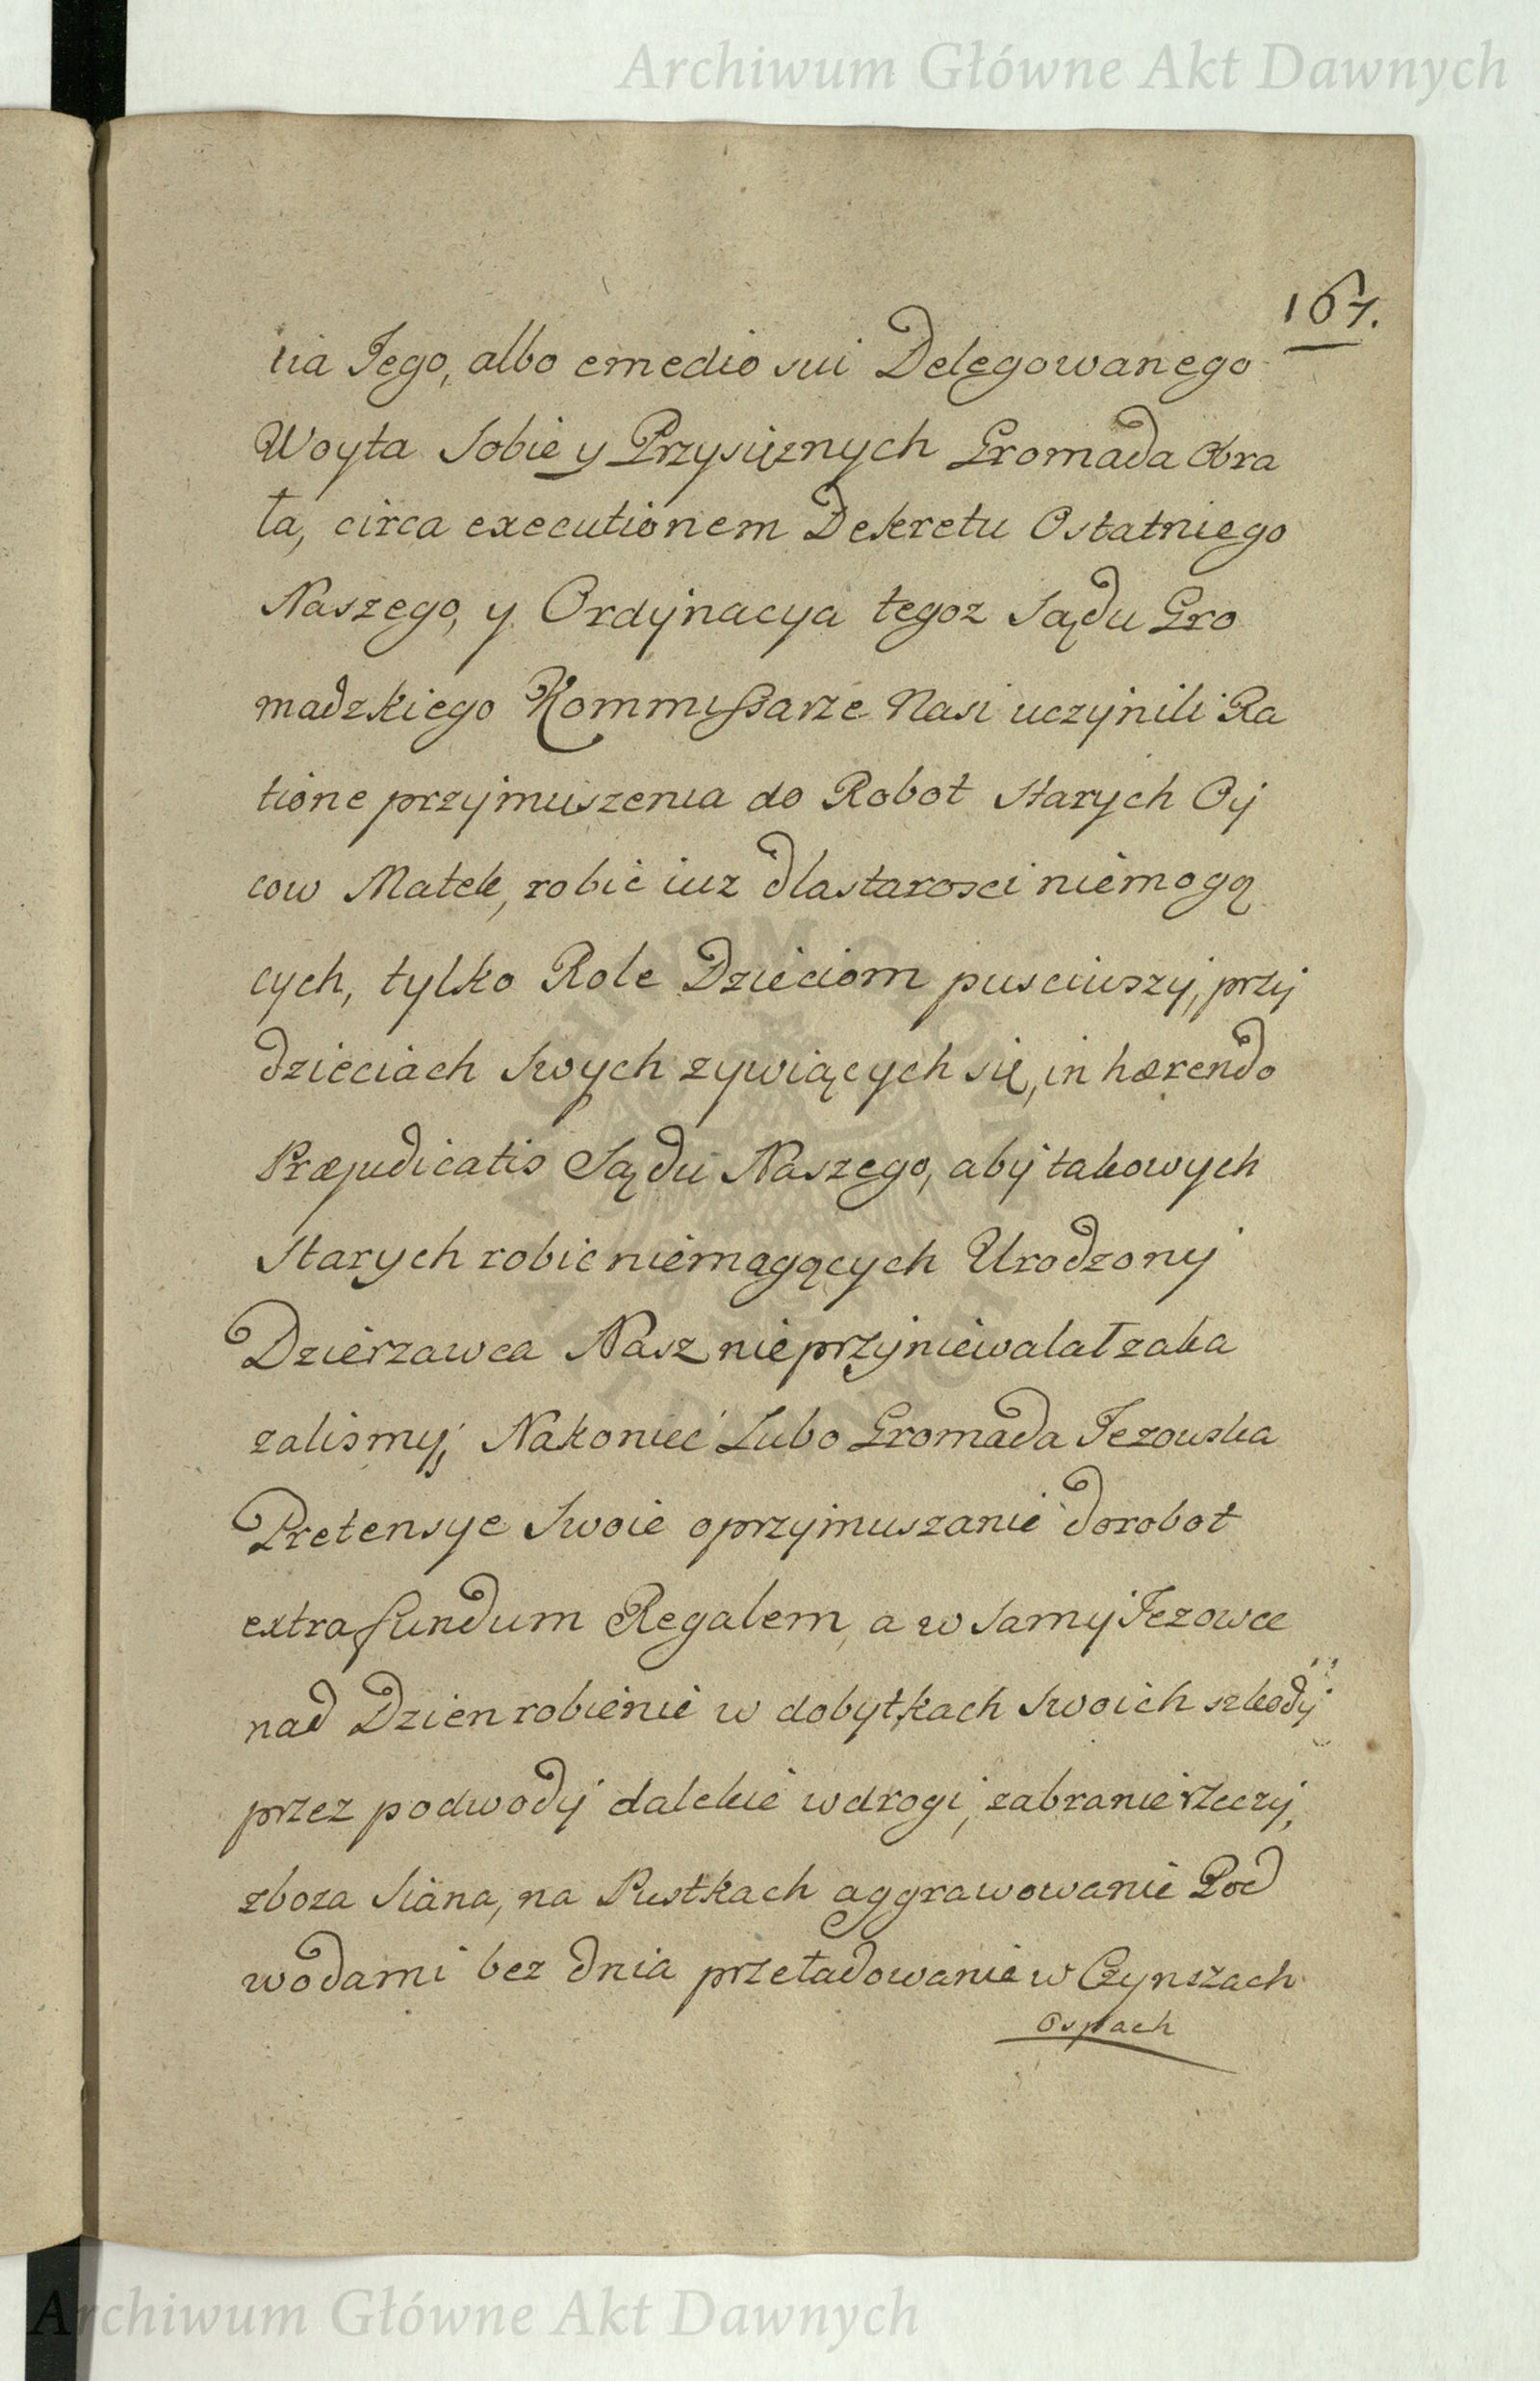 Archiwum Główne Akt Dawnych
167.
nia Jego, albo emedio sui Delegowanego
Woyta Sobie y Przysięznych Gromada Obra
ła, circa executionem Dekretu Ostatniego
Naszego, y Ordÿnacya tegoz Sądu Gro
madzkiego Kommißarze Nasi uczÿnili Ra
tione przÿmuszenia do Robot Starych Oÿ
cow Matek, robić iuz dlastarosci niemogą
cych, tylko Role Dzieciom pusciwszÿ, przÿ
dzieciach Swych zywiących się, in hærendo
Præjudicatis Sądu Naszego, abÿ takowych
Starych robic niemogących Urodzonÿ
Dzierzawca Nasz nieprzÿniewalał zaka
zalismÿ; Nakoniec Lubo Gromada Jezowska
Pretensye Swoie oprzÿmuszanie dorobot
extra fundum Regalem, a w Samÿ Jezowce
nad Dzien robienie w dobytkach Swoich szkodÿ
przez podwodÿ dalekie wdrogi, zabranie rzeczÿ,
zboza Siana, na Pustkach aggrawowanie Pod
wodami bez dnia przeładowanie w Czynszach
Ospach
Archiwum Główne Akt Dawnych